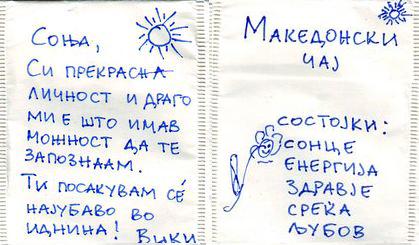 Соња,
Си прекрасна
личност и драго
ми е што имав
можност да те
запознаам.
Ти посакувам сé
најубаво во
иднина! Вики
Македонски
чај
состојки:
сонце
енергија
здравје
среќа
љубов